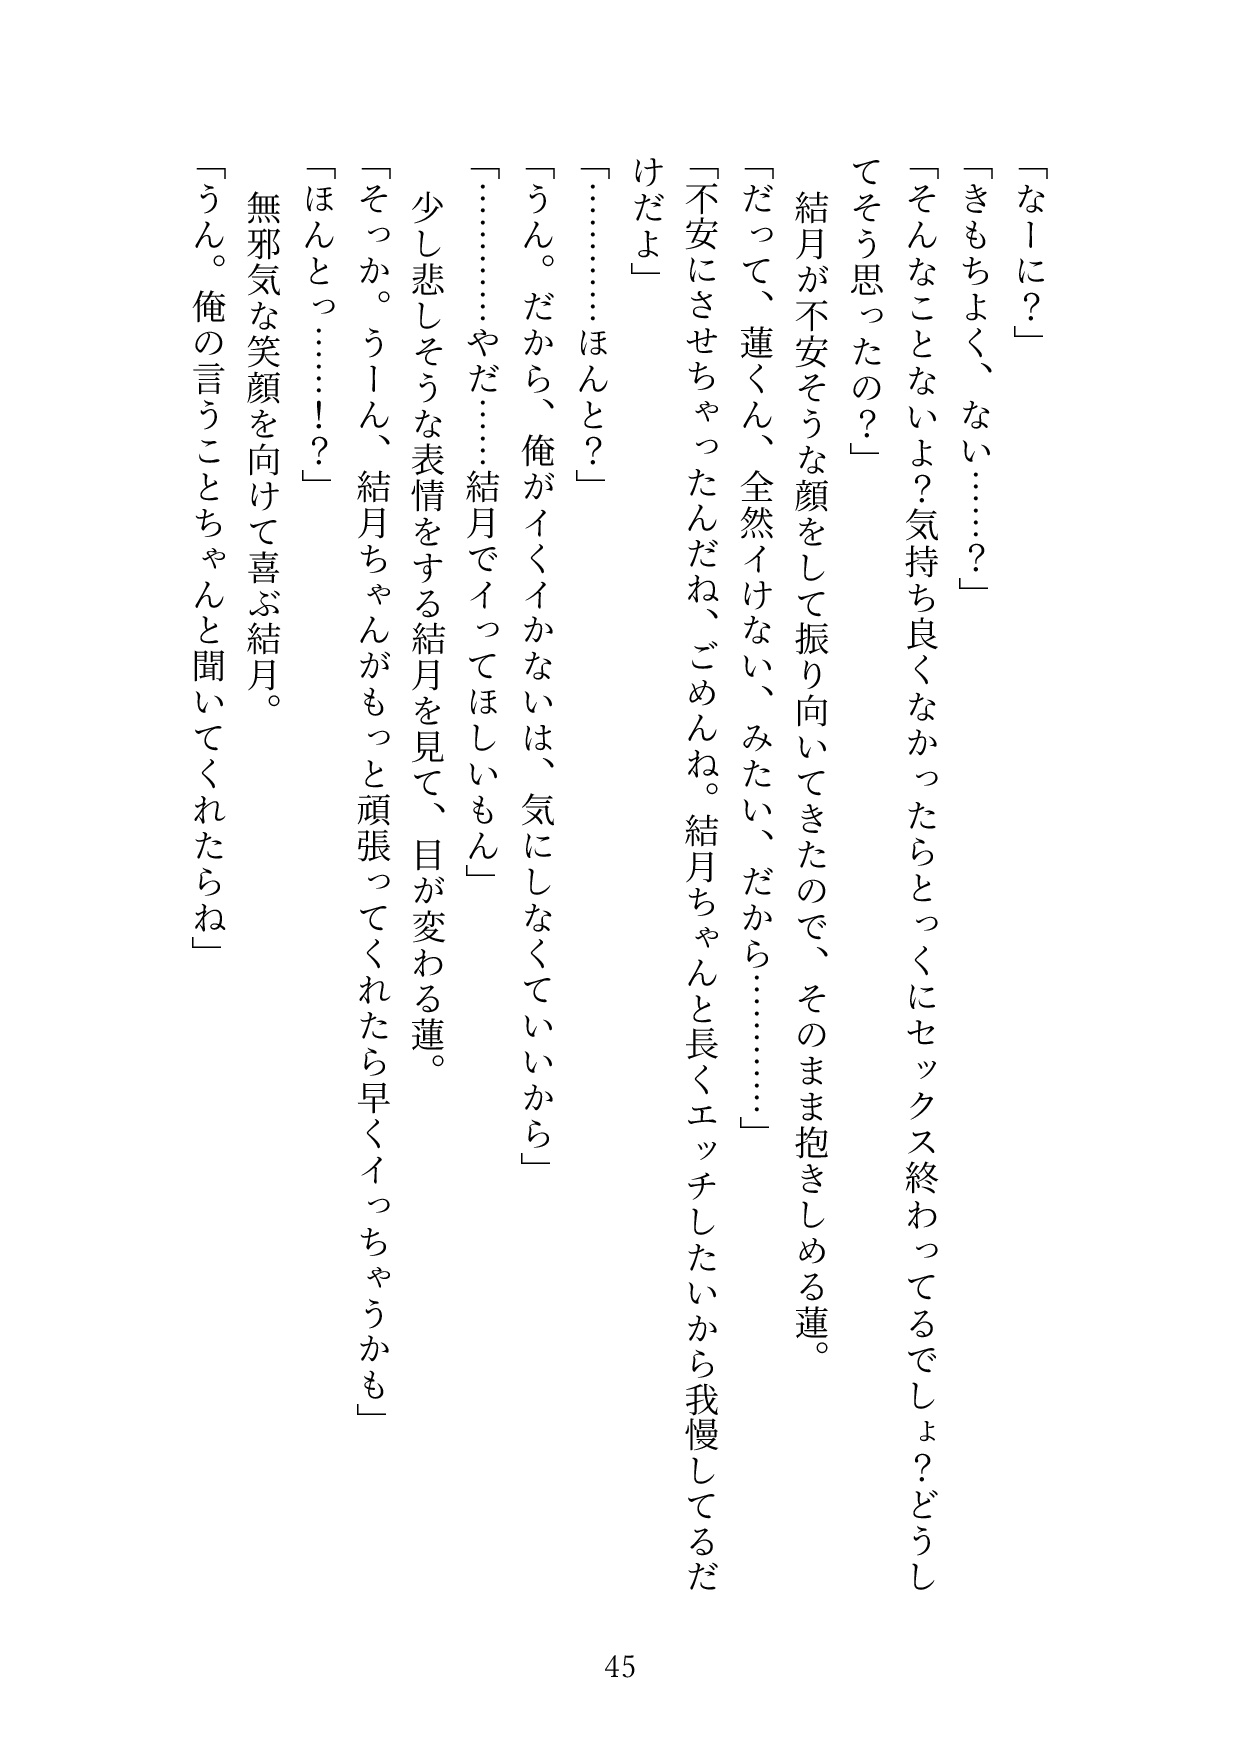 「なーに？」
「きもちよく、ない……？」
「そんなことないよ？気持ち良くなかったらとっくにセックス終わってるでしょ？どうし
てそう思ったの？」
　結月が不安そうな顔をして振り向いてきたので、そのまま抱きしめる蓮。
「だって、蓮くん、全然イけない、みたい、だから…………」
「不安にさせちゃったんだね、ごめんね。結月ちゃんと長くエッチしたいから我慢してるだ
けだよ」
「…………ほんと？」
「うん。だから、俺がイくイかないは、気にしなくていいから」
「…………やだ……結月でイってほしいもん」
　少し悲しそうな表情をする結月を見て、目が変わる蓮。
「そっか。うーん、結月ちゃんがもっと頑張ってくれたら早くイっちゃうかも」
「ほんとっ……！？」
　無邪気な笑顔を向けて喜ぶ結月。
「うん。俺の言うことちゃんと聞いてくれたらね」
45